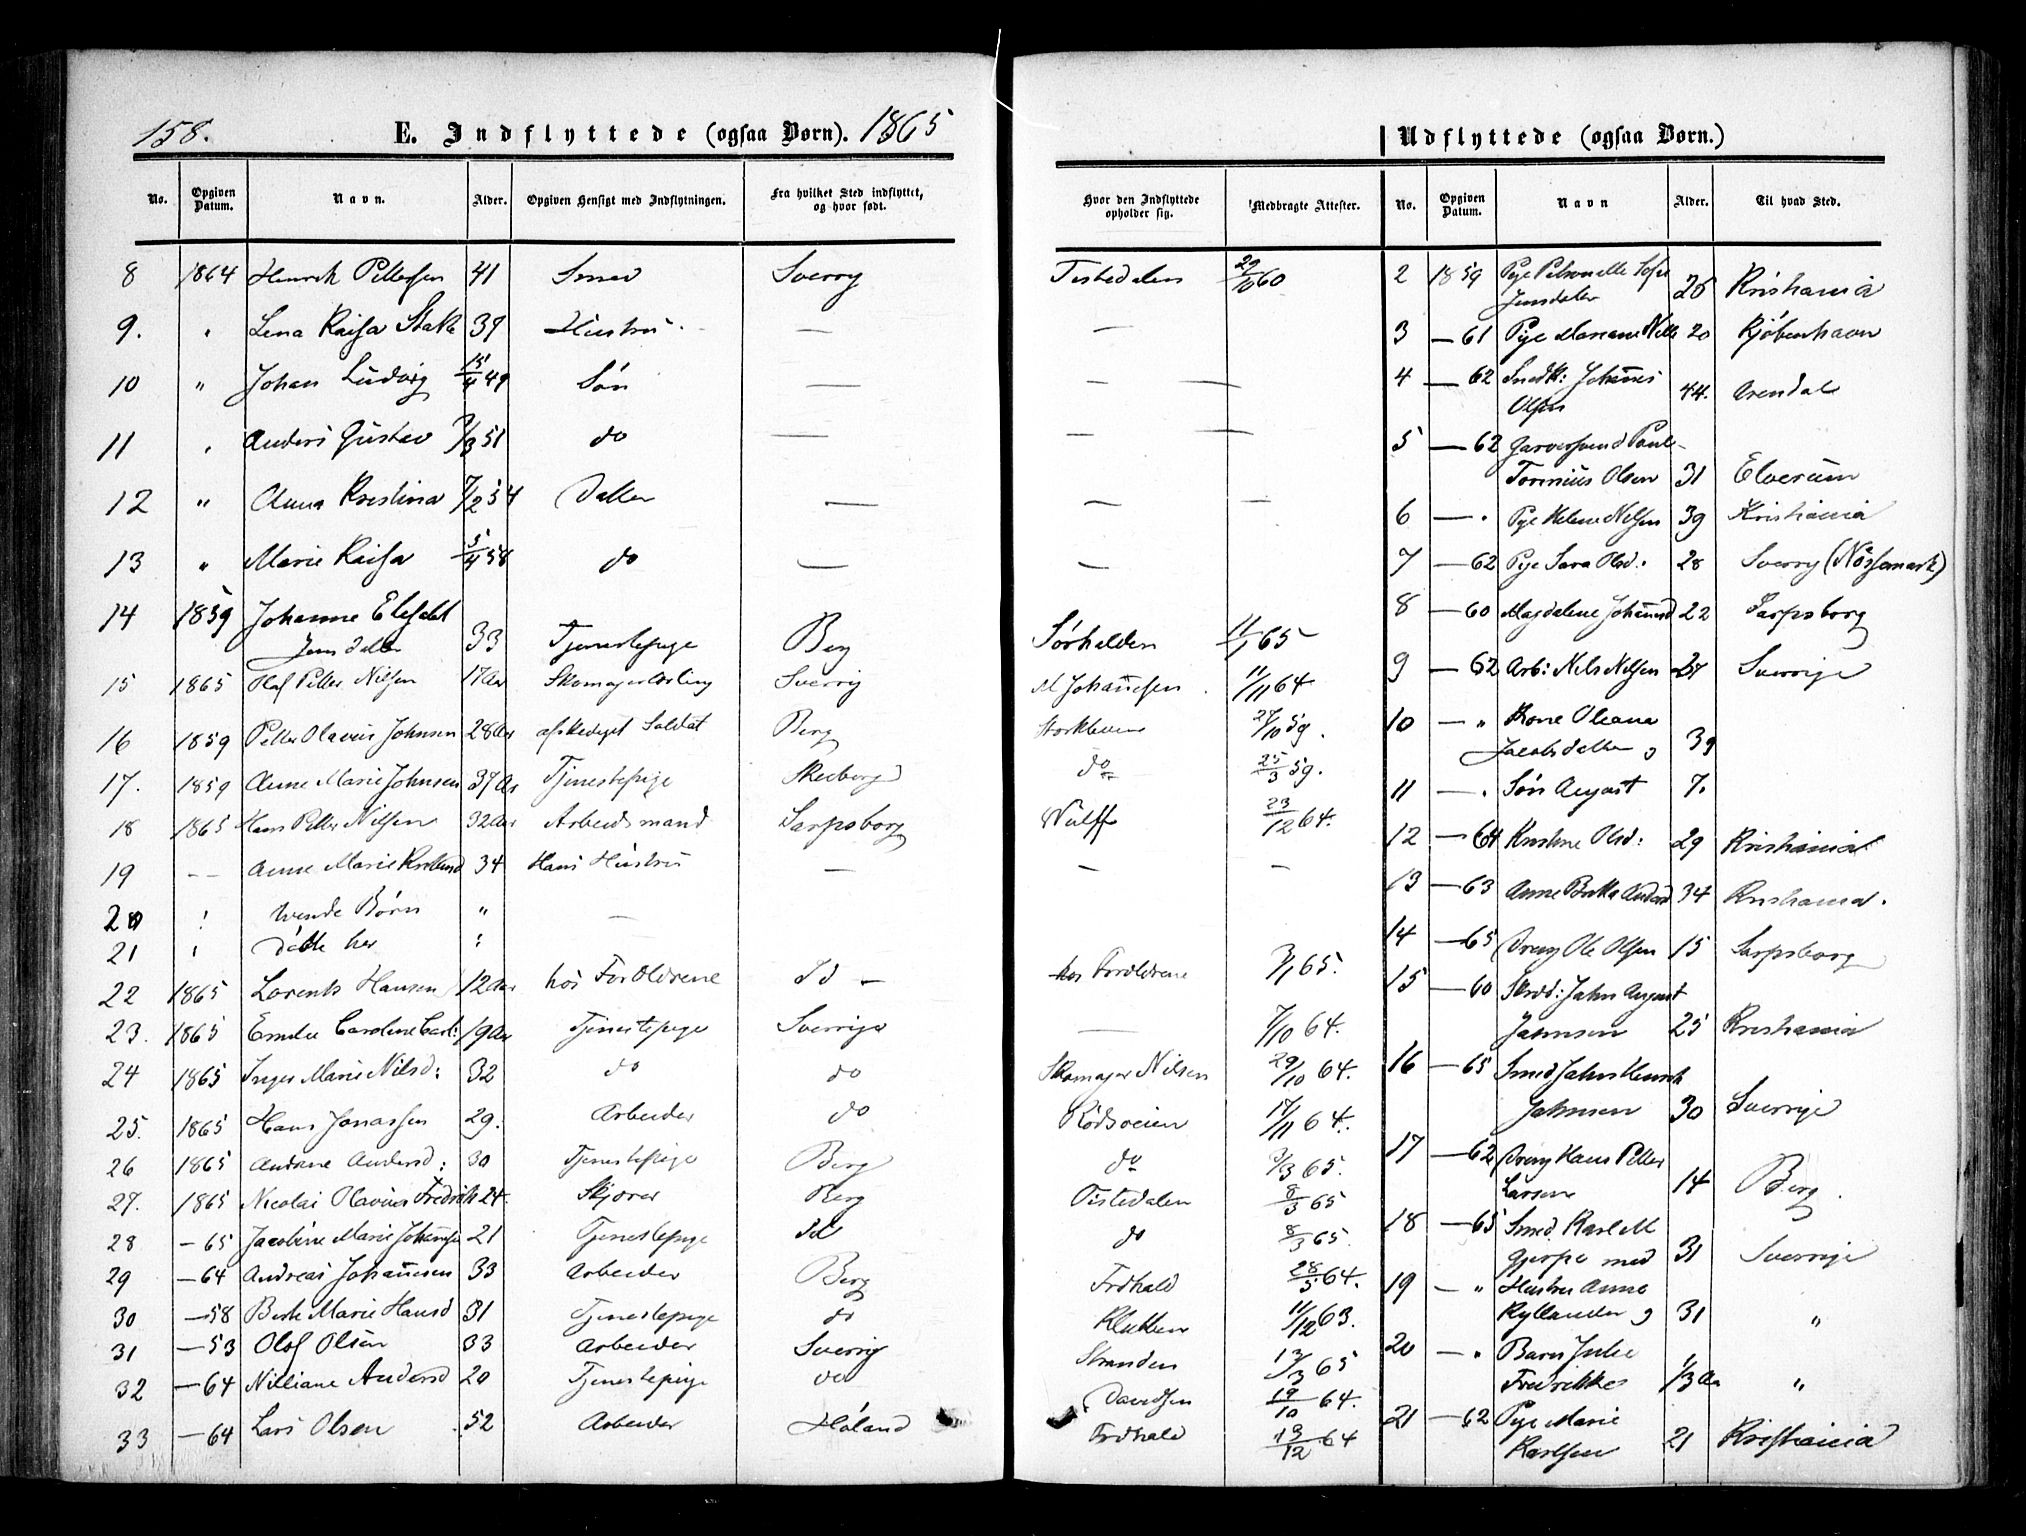 158. E. Indflyttede (ogsaa Børn). 1865
Udflyttede (ogsaa Børn.)
No. Opgiven Datum. Navn. Alder. Opgiven Hensigt med Indflytningen. Fra hvilket Sted indflyttet, og hvor født. Hvor den Indflyttede opholder sig. Medbragte Attester.
No. Opgiven Datum. Navn Alder. Til hvad Sted.
8 1864 Henrik Pettersen 41 Smed Sverrig Tistedalen 29/10 60
9. " Lena Kaisa Stake 39 Hustru — —
10 " Johan Ludvig 15/4 49 Søn — — —
11 " Anders Gustav 7/3 51 do — — —
12 " Anna Kristina 7/2 54 Datter — — —
13 " Marie Kaisa 5/4 58 do — —
14 1859 Johanne Elisabet
Jensdatter 33 Tjenestepige Berg Sørhalden 11/1 65
15 1865 Olaf Petter Nilsen 17 Aar Skomagerlærling Sverrig M Johannesen 11/11 64
16 1859 Petter Olavus Johnsen 28 Aar afskediget Soldat Berg 27/10 59.
17. 1859 Anne Marie Johnsen 37 Aar Tjenestepige Skeeberg do 25/3 59.
18 1865 Hans Petter Nilsen 32 Aar Arbeidsmand Sarpsborg Wulff 23/12 64.
19 -- Anne Marie 34 Hans Hustru — — —
20 " tvende Børn " —
21 " døtte her "
22 1865 Lorents Hansen 12 Aar hos Forældrene Id — hos Forældrene 3/1 65.
23. 1865 Emilie Caroline Carl: 19 Aar Tjenestepige Sverrige — 7/10 64.
24 1865 Inger Marie Nilsd: 32 do do Skomager Nilsen 29/10 64.
25. 1865 Hans Jonassen 29. Arbeider do Rødsveien 17/11 64.
26 1865 Andrine Andersd: 30 Tjenestepige Berg do 3/3 65.
27. 1865 Nicolai Olavus Fredrik 24. Berg Tistedalen 8/3 65
28 — 65 Jacobine Marie Johannesd 21 Tjenestepige Id do 8/3 65.
29 — 64 Andreas Johannesen 33 Arbeider Berg Frdhald 28/5 64.
30 — 58 Berte Marie Hansd 31 Tjenestepige do 11/12 63.
31 — 53 Olof Olsen 33 Arbeider Sverrig Stranden 13/3 65
32 — 64 Nilliane Andersd 20 Tjenestepige do Davidsen 19/10 64.
33 — 64 Lars Olsen 52 Arbeider Høland Frdhald 13/12 64
2 1859 Pige Petronelle Sofie
Jensdatter 26 Kristiania
3 — 61 Pige Mariane Nills 20 Kjøbenhavn
4 — 62 Snedk: Johannes
Olsen 44. Arendal
5 — 62 Garversvend Paul
Torinius Olsen 31 Elverum
6 — " Pige Helene Nelsen 39 Kristiania
7 — 62 Pige Sara Olsd: 28 Sverrig (Nössemark)
8 — 60 Magdalene Johannesd 22 Sarpsborg
9 — 62 Arb: Nels Nelsen 37 Sverrige
10 — " Kone Oleana
Jacobsdatter og 39
11 — " Søn August 7.
12 — 64 Kristine Olsd: 29 Kristiania
13 — 63 Anne Andersd 34 Kristiania.
14 — 65 Dreng Ole Olsen 15 Sarpsborg
15 — 60 Skrd: John August
Johnsen 25 Kristiania
16 — 65 Smed Johns Henrik
Johnsen 30 Sverrige
17 — 62 Dreng Hans Petter
Larsen 14 Berg.
18 — 65 Smed Karl M
Gjerpe med 31 Sverrige
19 — " Hustru Anne
Kyllander og 31 "
20 — " Barn Julie
Fredrikke 1/3 Aar "
21 — 62 Pige Marie
Karlsen 21 Kristiania